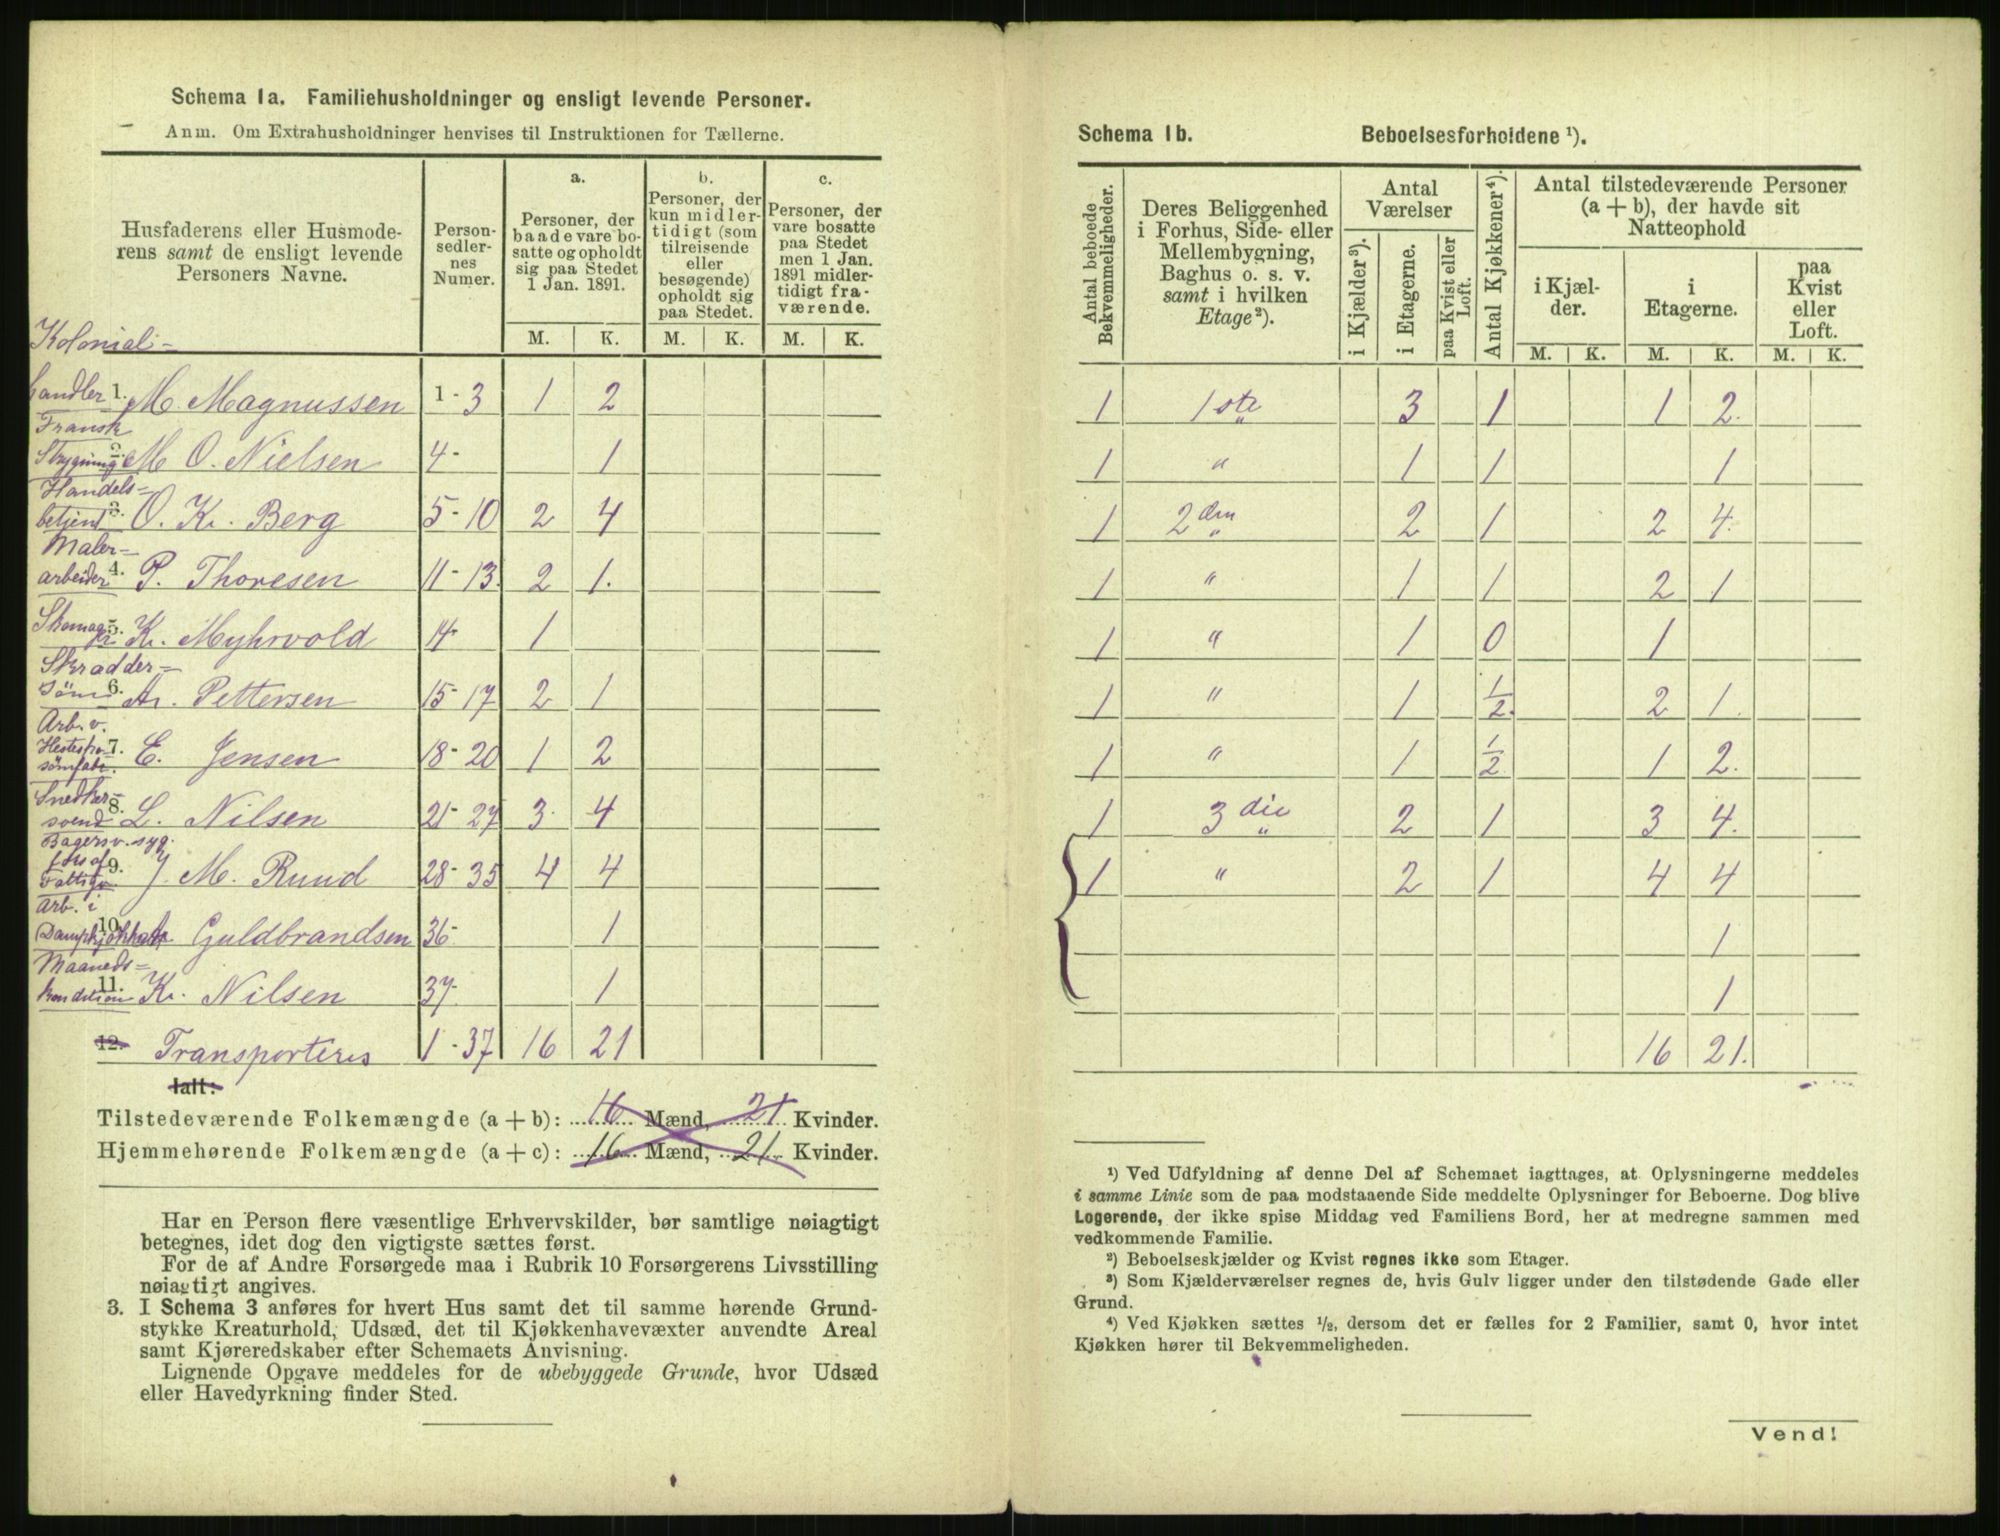 Schema 1a. Familiehusholdninger og ensligt levende Personer.
Anm. Om Extrahusholdninger henvises til Instruktionen for Tællerne.
Husfaderens eller Husmoderens samt de ensligt levende Personers Navne.
Person-sedler-nes Numer.
a. Personer, der baade vare bosatte og opholdt sig paa Stedet 1 Jan. 1891.
b. Personer, der kun midlertidigt (som tilreisende eller besøgende) opholdt sig paa Stedet.
c. Personer, der vare bosatte paa Stedet men 1 Jan. 1891 midlertidigt fraværende.
M. K. M. K. M. K.
Kolonial-
handler 1. M. Magnussen 1-3 1 2
Fransk
Strygning 2. M O. Nielsen 4- 1
Handels-
betjent 3. O. Kr. Berg 5-10 2 4
Maler-
arbeider 4. P. Thoresen 11-13. 2 1.
5. K. Myhrvold 14- 1
Skradder-
6. Pettersen 15-17 2 1
Arb. v.
7. E. Jensen 18-20 1 2
Snedker-
svend 8. L. Nilsen 21-27 3. 4
Bagersv. syg.
9. J. M. Ruud 28-35 4 4
Arb. i
10. Guldbrandsen 36- 1
Maaneds-
kondition 11. K. Nilsen 37- 1
12. Transporteres 1-37 16 21
Ialt:
Tilstedeværende Folkemængde (a + b): 16 Mænd, 21 Kvinder.
Hjemmehørende Folkemængde (a + c): 16 Mænd, 21 Kvinder.
Har en Person flere væsentlige Erhvervskilder, bør samtlige nøiagtigt
betegnes, idet dog den vigtigste sættes først.
For de af Andre Forsørgede maa i Rubrik 10 Forsørgerens Livsstilling
nøiagtigt angives.
3. I Schema 3 anføres for hvert Hus samt det til samme hørende Grund-
stykke Kreaturhold, Udsæd, det til Kjøkkenhavevæxter anvendte Areal
samt Kjøreredskaber efter Schemaets Anvisning.
Lignende Opgave meddeles for de ubebyggede Grunde, hvor Udsæd
eller Havedyrkning finder Sted.
Schema 1b. Beboelsesforholdene ¹).
Antal beboede Bekvemmeligheder.
Deres Beliggenhed i Forhus, Side- eller Mellembygning, Baghus o. s. v. samt i hvilken Etage²).
Antal Værelser
i Kjælder³). i Etagerne. paa Kvist eller Loft.
Antal Kjøkkener⁴).
Antal tilstedeværende Personer (a + b), der havde sit Natteophold
i Kjælder. i Etagerne. paa Kvist eller Loft.
M. K. M. K. M. K.
1 1ste " 3 1 1 2.
1 " 1 1 1
1 2den " 2 1 2 4.
1 " 1 1 2 1
1 " 1 0 1
1 " 1 1/2. 2 1.
1 " 1 1/2 1 2.
1 3die " 2 1 3 4.
1 " 2 1 4 4
1
1
16 21.
¹) Ved Udfyldning af denne Del af Schemaet iagttages, at Oplysningerne meddeles
i samme Linie som de paa modstaaende Side meddelte Oplysninger for Beboerne. Dog blive
Logerende, der ikke spise Middag ved Familiens Bord, her at medregne sammen med
vedkommende Familie.
²) Beboelseskjælder og Kvist regnes ikke som Etager.
³) Som Kjælderværelser regnes de, hvis Gulv ligger under den tilstødende Gade eller
Grund.
⁴) Ved Kjøkken sættes ½, dersom det er fælles for 2 Familier, samt 0, hvor intet
Kjøkken hører til Bekvemmeligheden.
Vend!